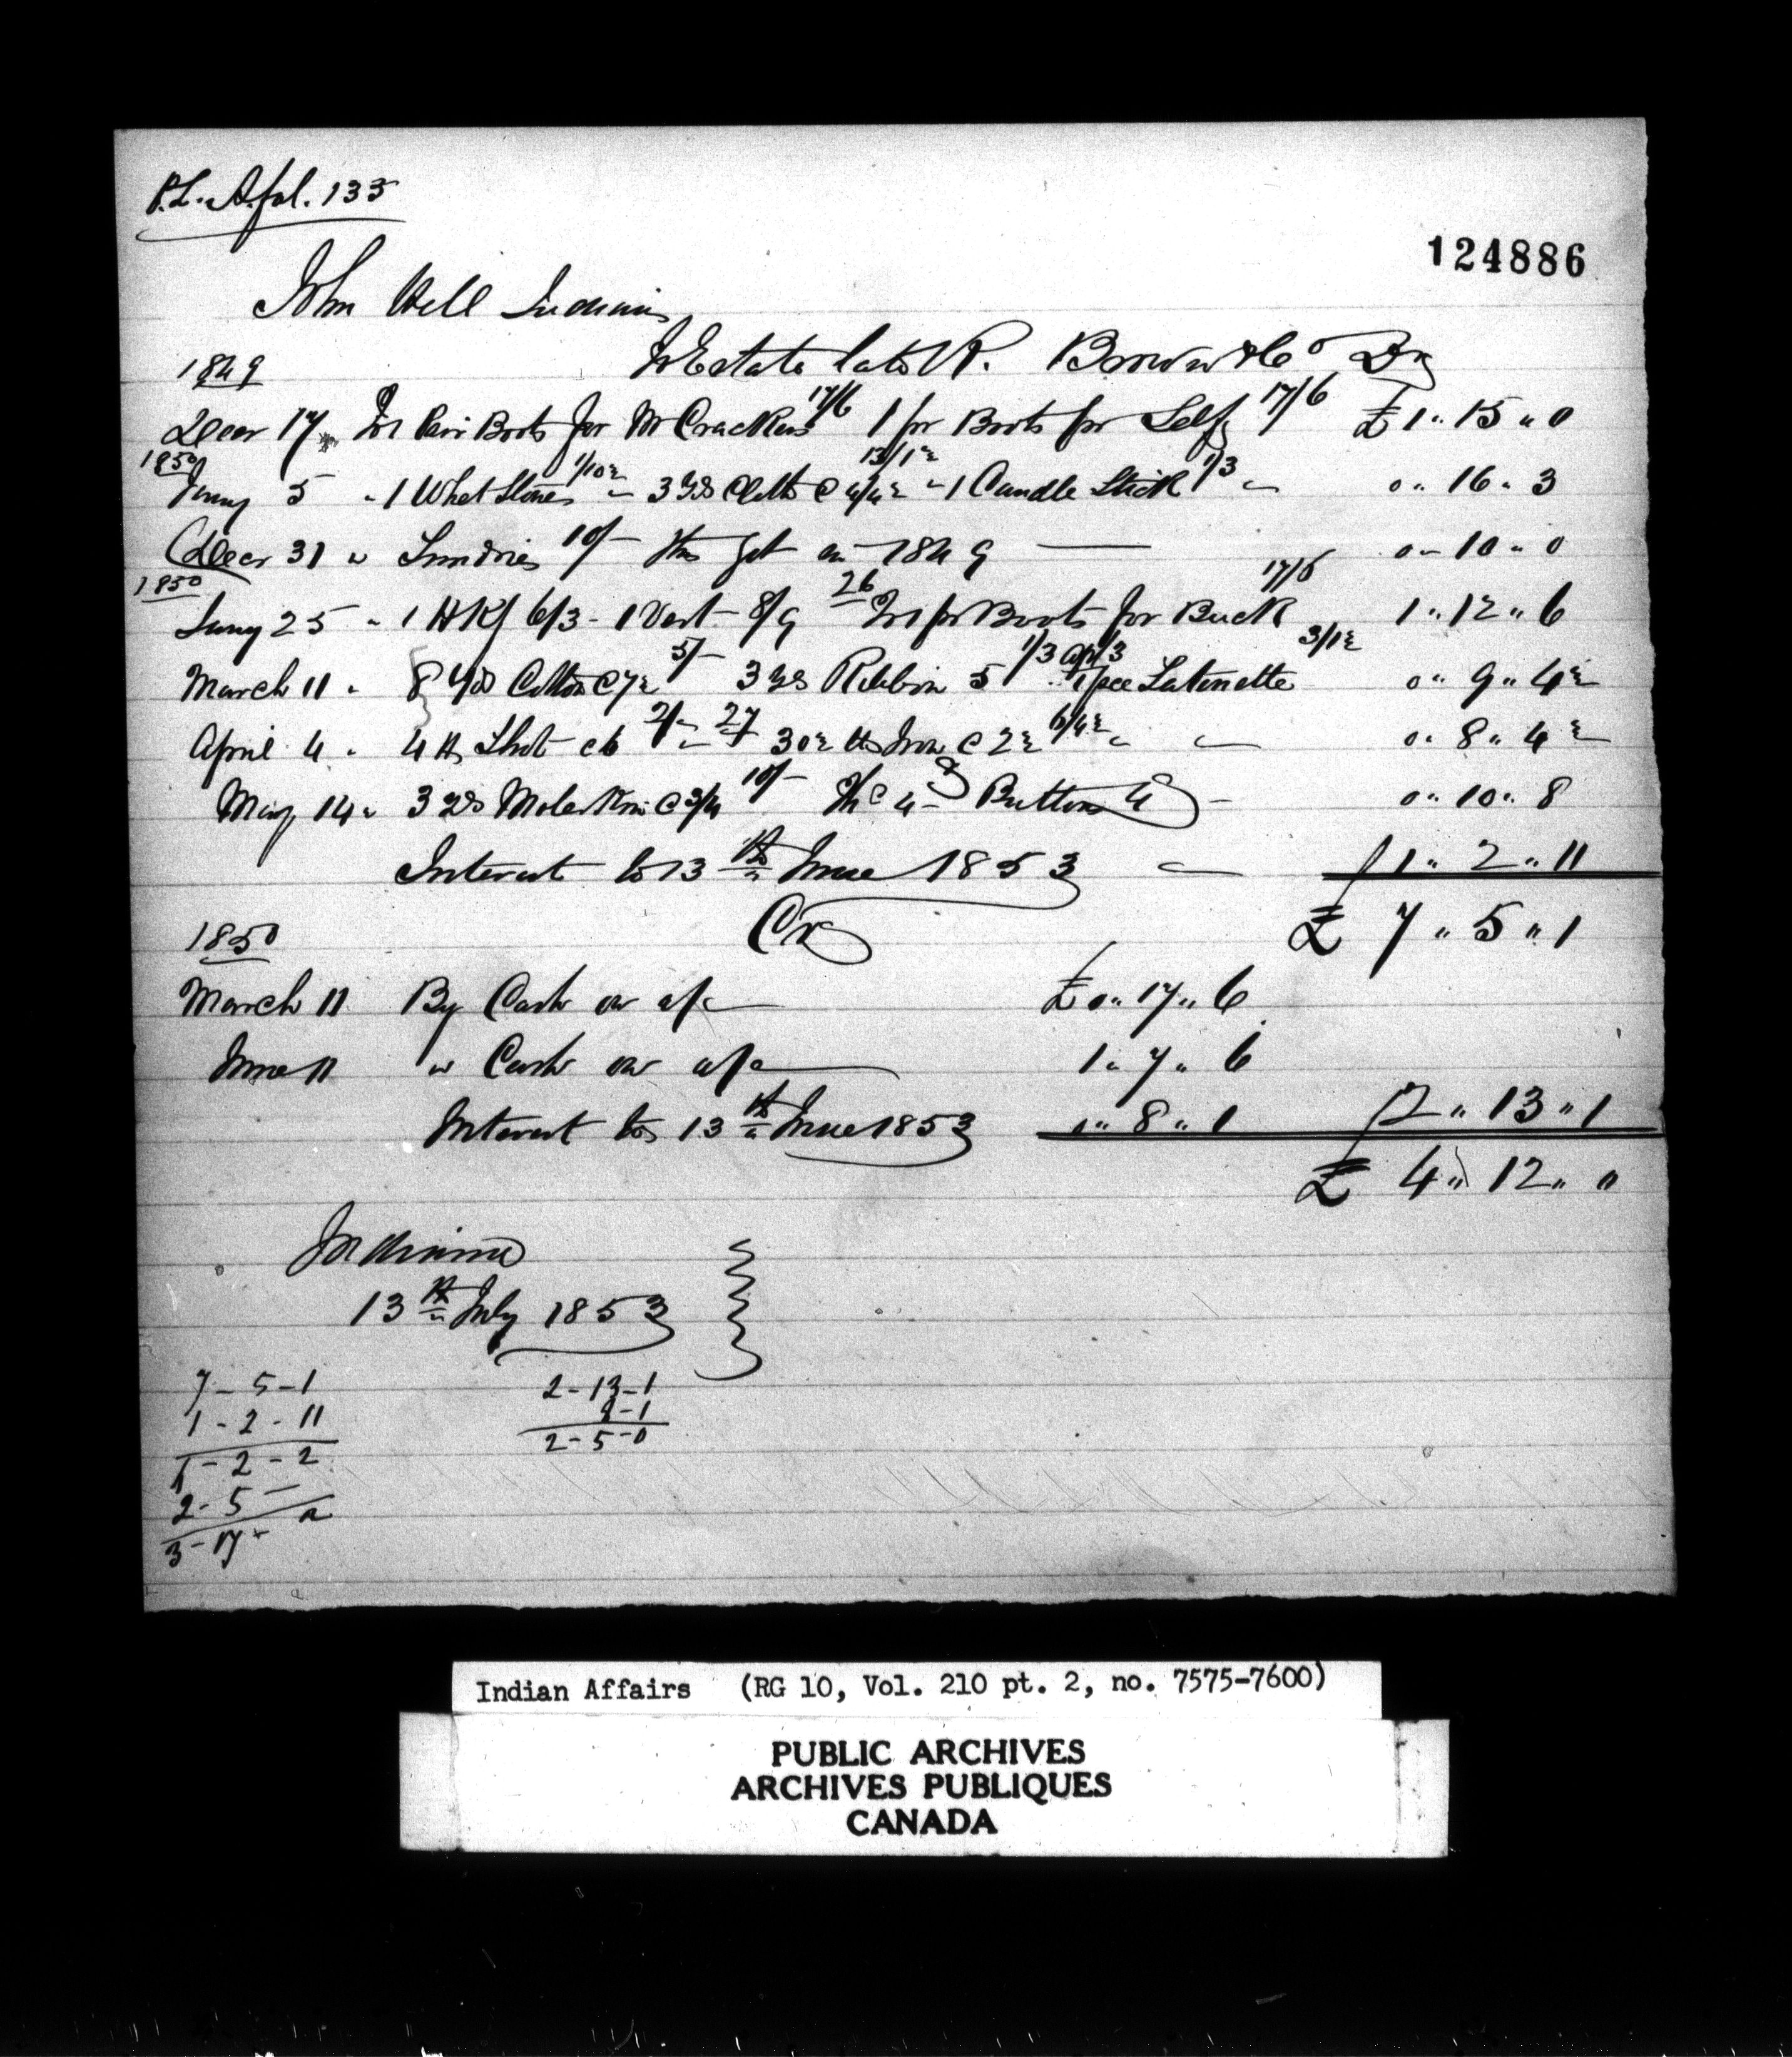 P.L. A. fol. 133
124886
John Hill Indian
To Estate late R. Brown & Co Dr
1849
Decr 17 To 1 Pair Boots for McCracken 17/6 1 pr Boots for Self 17/6 £1 " 15 " 0
1850
Jany 5 " 1 Whet Stone 1/10½ " 3 yds Cloth @ 4/4½ 13/1½ " 1 Candle Stick 1/3 0 " 16 " 3
Decr 31 " Sundries 10/- 1849 0 " 10 " 0
1850
Jany 25 " 1 HKf 6/3 - 1 Vest 8/9 26 To 1 pr Boots for Buck 17/6 1 " 12 " 6
March 11 " 8 yds Cotton @ 7½ 5/- 3 yds Ribbon 5 1/3 Apl 3 1 pce Satinette 3/1½ 0 " 9 " 4½
April 4 " 4 lb Shot @ 6 2/- " 27 30½ lbs Iron @ 2½ 6/4½ " 0 " 8 " 4½
May 14 " 3 yds Moleskin @ 3/4 10/- 4 Buttons 4 0 " 10 " 8
Interest to 13th June 1853 1 " 2 " 11
Cr £ 7 " 5 " 1
1850
March 11 By Cash on a/c £0 " 17 " 6
June 11 " Cash on a/c 1 " 7 " 6
Interest to 13th June 1853 0 " 8 " 1 2 " 13 " 1
£ 4 " 12 " 0
Indiana
13th July 1853
7 - 5 - 1 2 - 13 - 1
1 - 2 - 11 8 - 1
2 - 2 2 - 5 - 0
2 - 5 -
3 - 17
Indian Affairs (RG 10, Vol. 210 pt. 2, no. 7575-7600)
PUBLIC ARCHIVES
ARCHIVES PUBLIQUES
CANADA